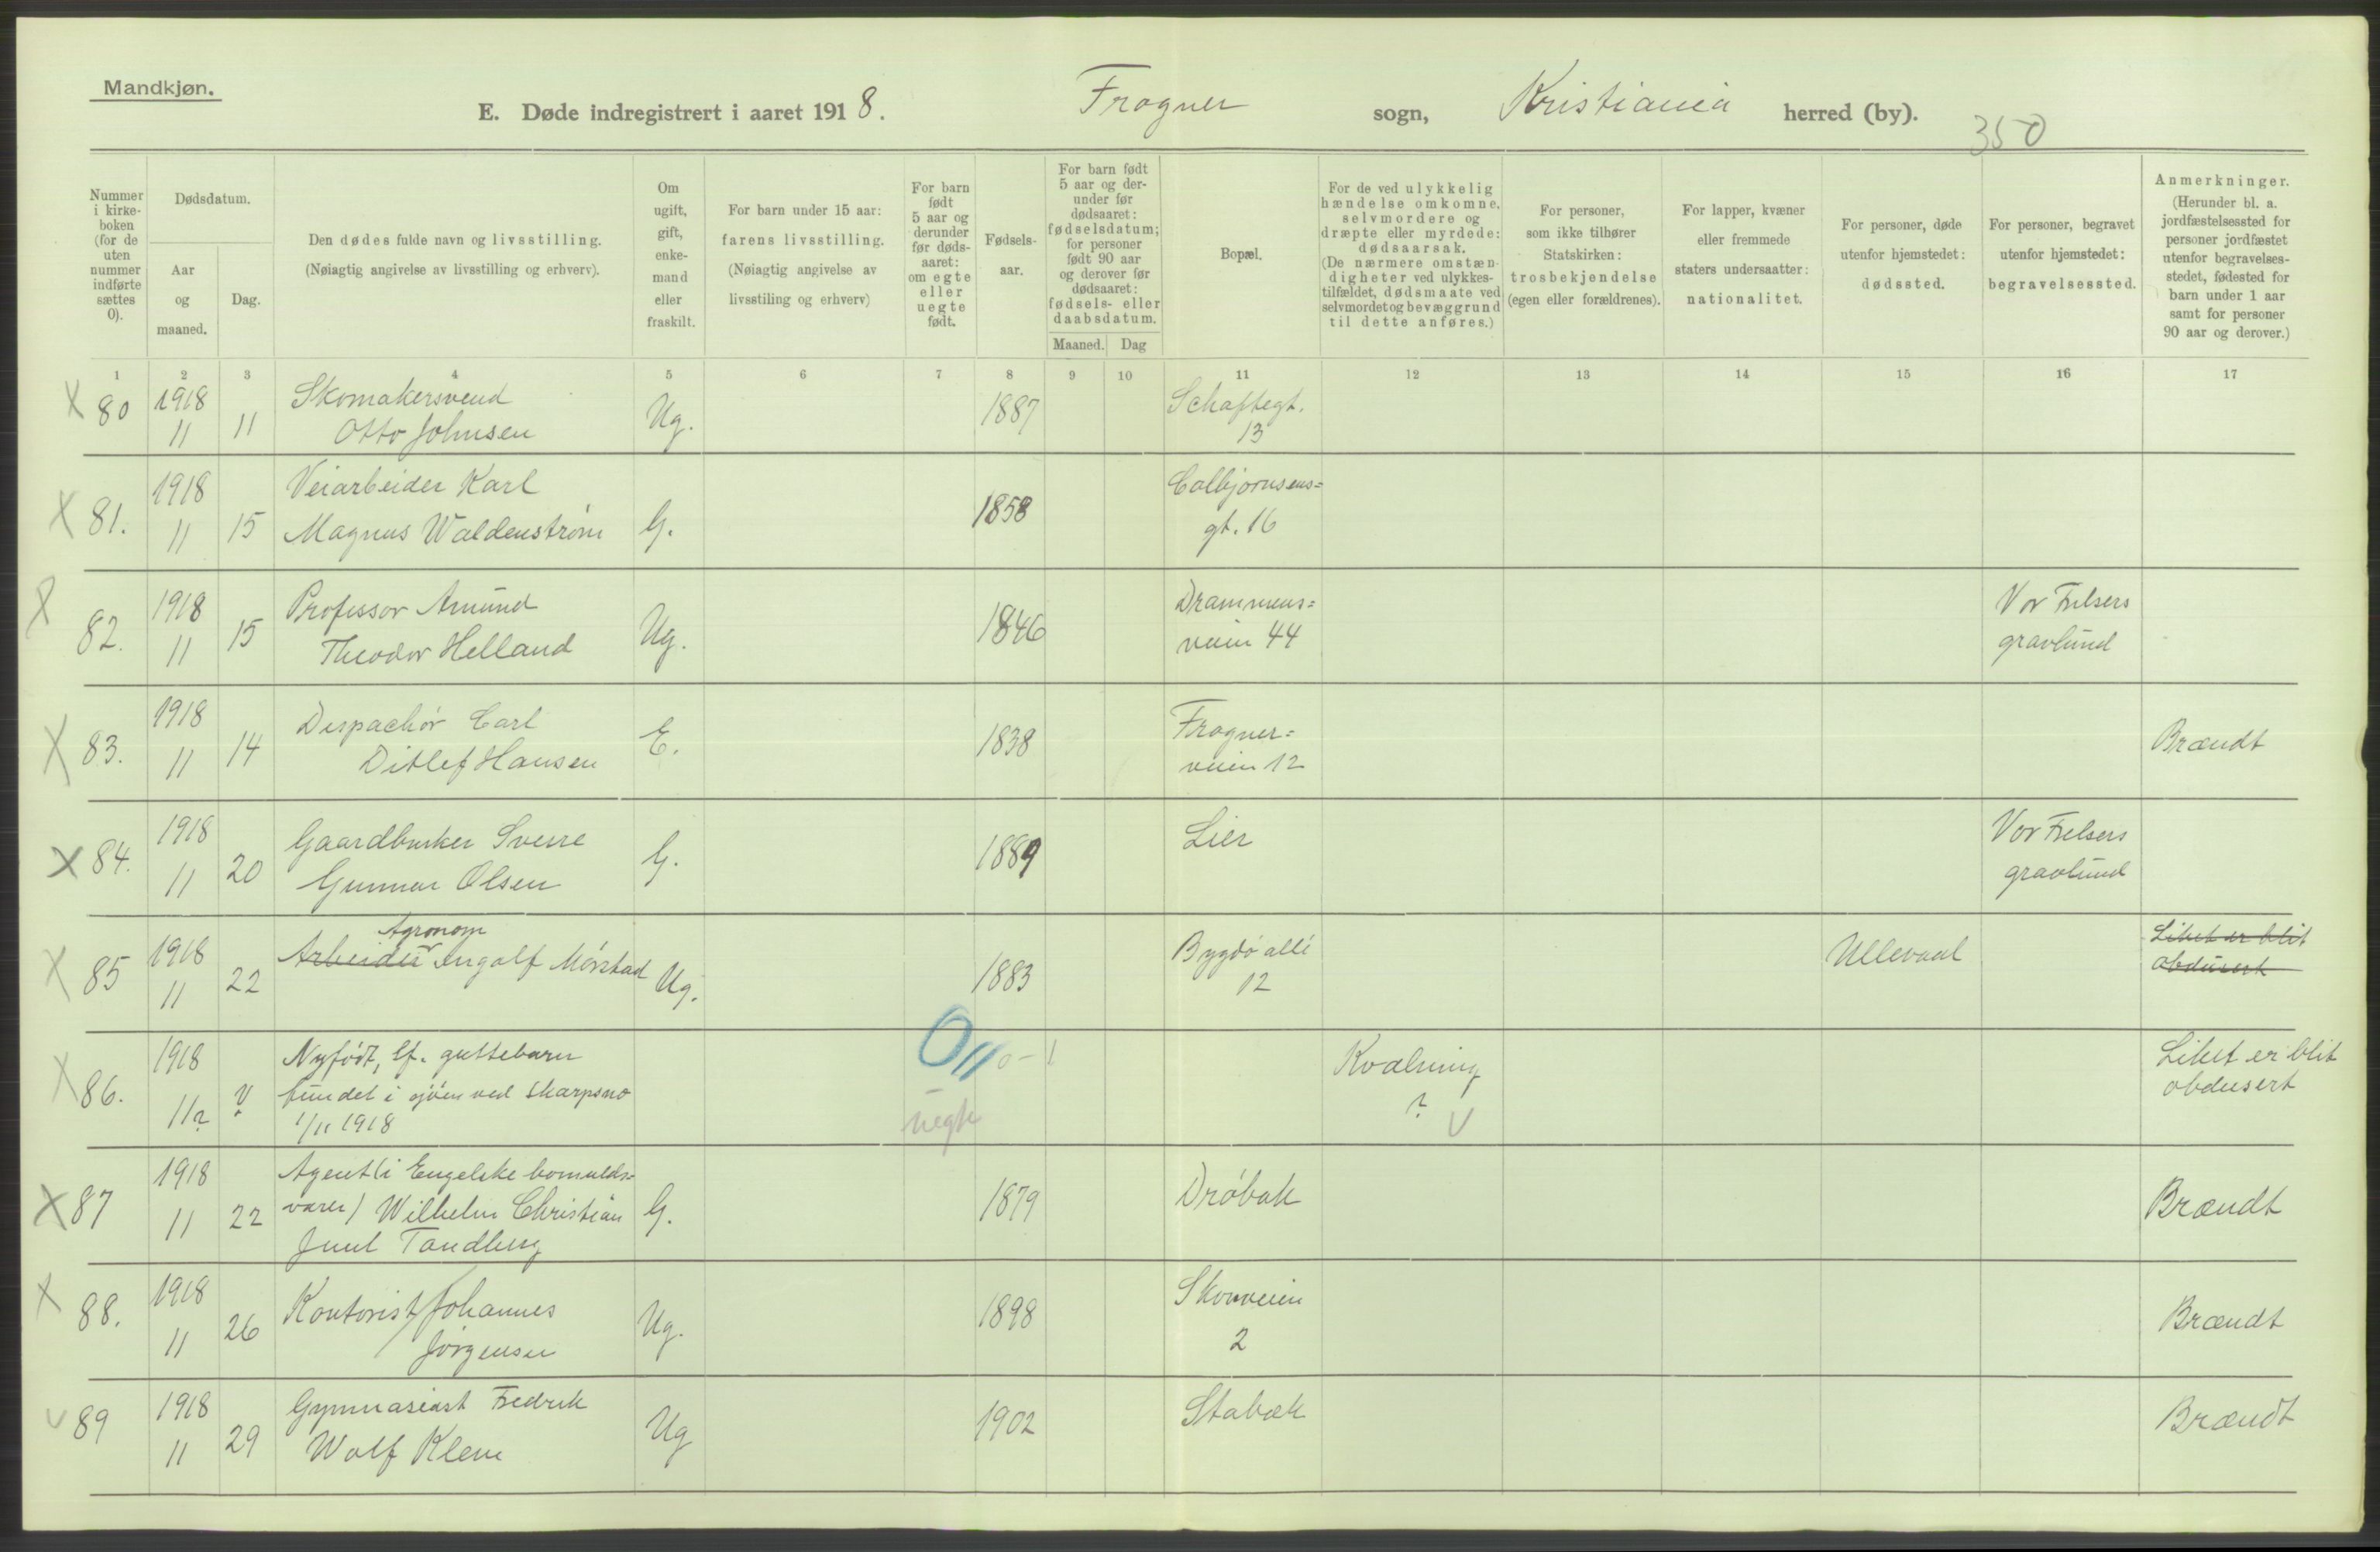 Mandkjøn.
E. Døde indregistrert i aaret 1918. Frogner sogn, Kristiania herred (by).
350
Nummer i kirke-boken (for de uten nummer indførte sættes 0).
Dødsdatum.
Aar og maaned.
Dag.
Den dødes fulde navn og livsstilling.
(Nøiagtig angivelse av livsstilling og erhverv).
Om ugift, gift, enke-mand eller fraskilt.
For barn under 15 aar:
farens livsstilling.
(Nøiagtig angivelse av
livsstiling og erhverv)
For barn født 5 aar og derunder før døds-aaret: om egte eller uegte født.
Fødsels-aar.
For barn født 5 aar og der-under før dødsaaret: fødselsdatum; for personer født 90 aar og derover før dødsaaret: fødsels- eller daabsdatum.
Maaned. Dag
Bopæl.
For de ved ulykkelig hændelse omkomne, selvmordere og dræpte eller myrdede: dødsaarsak. (De nærmere omstæn-digheter ved ulykkes-tilfældet, dødsmaate ved selvmordet og bevæggrund til dette anføres.)
For personer, som ikke tilhører Statskirken: trosbekjendelse (egen eller forældrenes).
For lapper, kvæner eller fremmede staters undersaatter: nationalitet.
For personer, døde utenfor hjemstedet: dødssted.
For personer, begravet utenfor hjemstedet: begravelsessted.
Anmerkninger.
(Herunder bl. a. jordfæstelsessted for personer jordfæstet utenfor begravelses-stedet, fødested for barn under 1 aar samt for personer 90 aar og derover.)
1 2 3 4 5 6 7 8 9 10 11 12 13 14 15 16 17
X 80 1918 11 11 Skomakersvend Ug. 1887 Schaftegt.
Otto Johnsen 13
X 81. 1918 11 15 Veiarbeider Karl G. 1858 Colbjørnsens=
Magnus Waldenstrøm gt. 16
X 82. 1918 11 15 Professor Amund Ug. 1846 Drammens= Vor Frelsers
Theodor Helland veien 44 gravlund
X 83. 1918 11 14 Despachør Carl E. 1838 Frogner= Brændt
Ditlef Hansen veien 12
X 84. 1918 11 20 Gaardbruker Sverre G. 1889 Lier Vor Frelsers
Gunnar Olsen gravlund
Agronom
X 85 1918 11 22 Arbeider Ingolf Mørstad Ug. 1883 Bygdø allé 12 Ullevaal Liket er blit
obdusert
X 86. 1918 11? ? Nyfødt, lf. guttebarn 0 11 0-1 Kvælning ? V Liket er blit
fundet i sjøen ved Skarpsno uegte obdusert
1/11 1918
X 87 1918 11 22 Agent (i Engelske bomulds= G. 1879 Drøbak Brændt
varer) Wilhelm Christian
Juul Tandberg
X 88. 1918 11 26 Kontorist Johannes Ug. 1898 Skovveien Brændt
Jørgensen 2
V 89 1918 11 29 Gymnasiast Fredrik Ug 1902 Stabæk Brændt
Wolf Klem